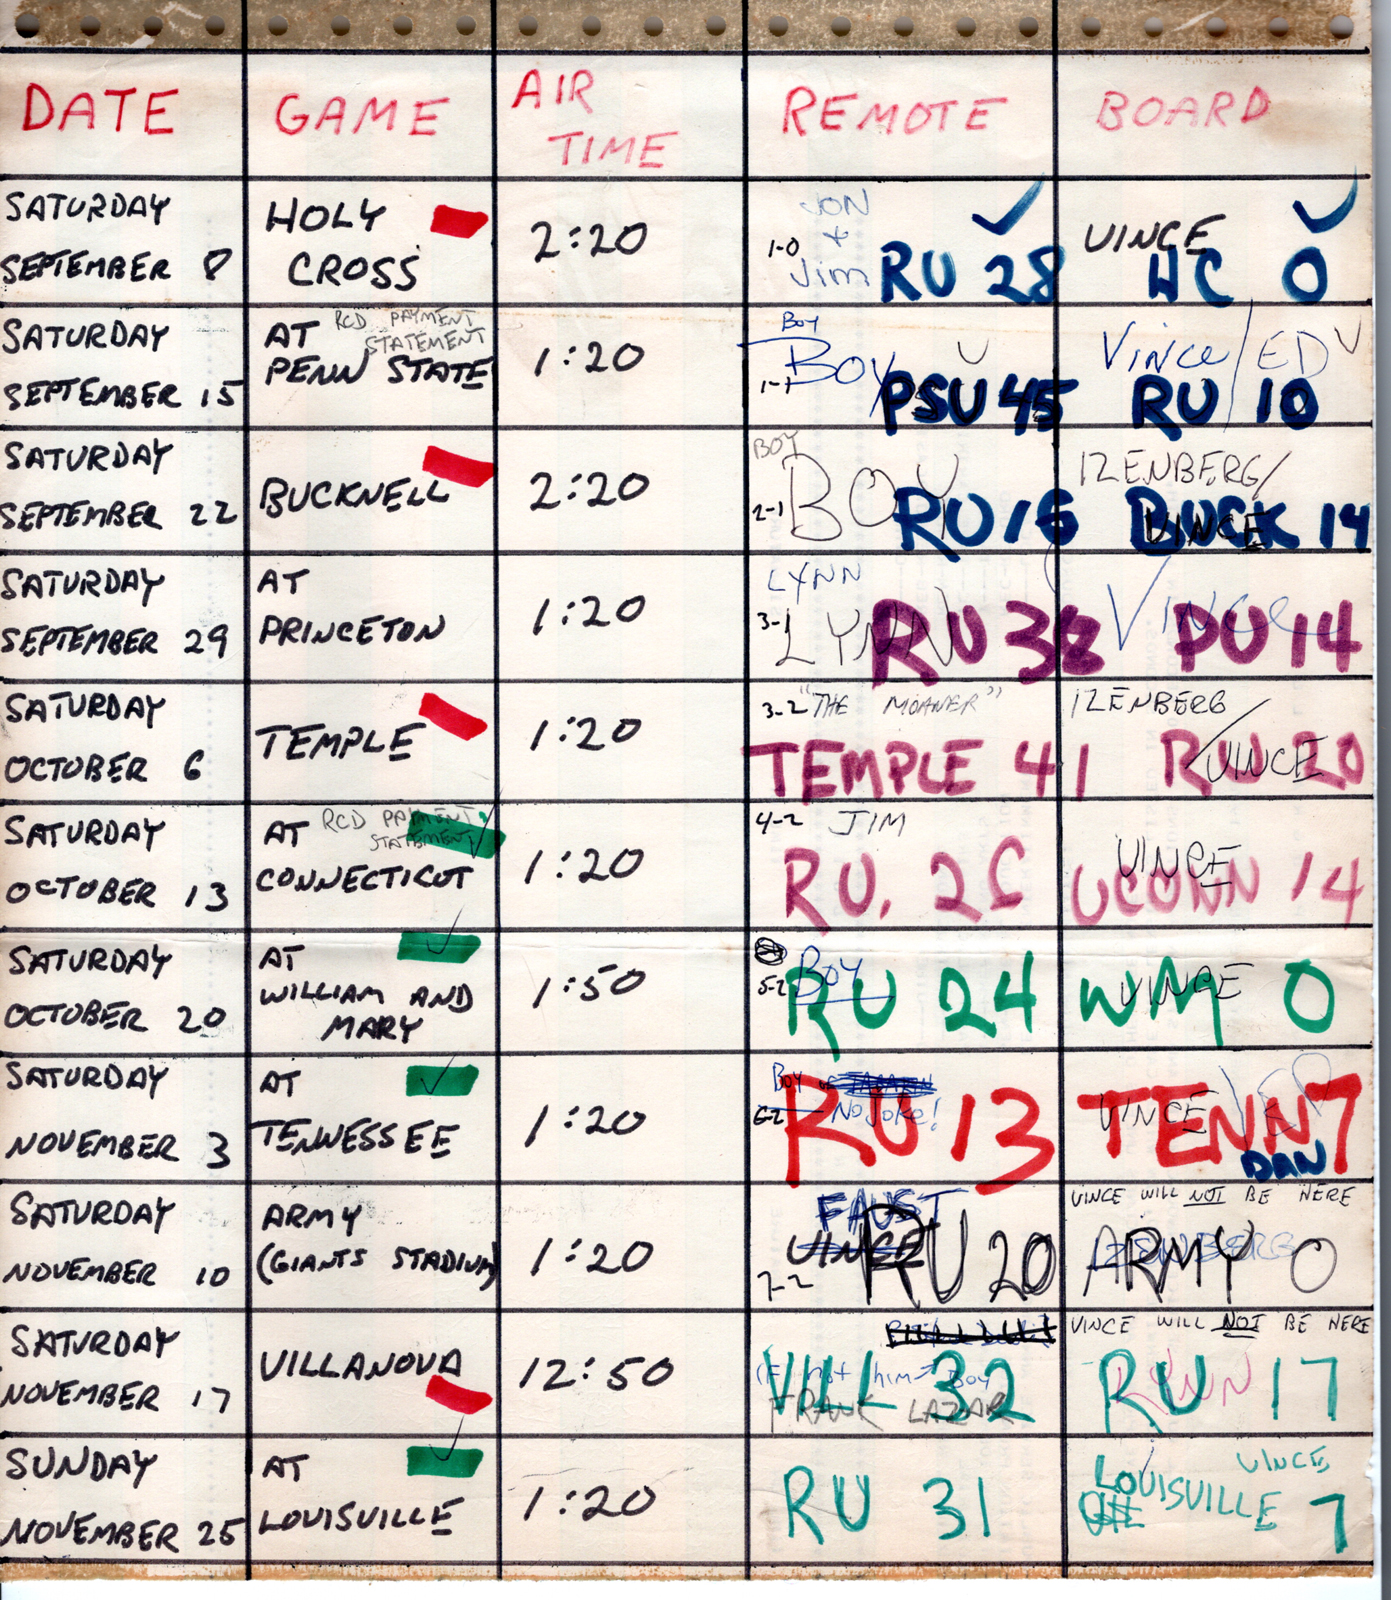 DATE GAME AIR TIME REMOTE BOARD
SATURDAY SEPTEMBER 8
HOLY CROSS
2:20
JON + Jim
1-0
RU 28
VINCE
HC 0
SATURDAY SEPTEMBER 15
AT PENN STATE
RCD PAYMENT STATEMENT
1:20
BOY
BOY
1-1
PSU 45
Vince/ED
RU 10
SATURDAY SEPTEMBER 22
BUCKNELL
2:20
BOY
BOY
2-1
RU 16
IZENBERG/
VINCE
BUCK 14
SATURDAY SEPTEMBER 29
AT PRINCETON
1:20
LYNN
3-1
LYNN
RU 38
Vince
PU 14
SATURDAY OCTOBER 6
TEMPLE
1:20
3-2 "THE MOANER"
TEMPLE 41
IZENBERG
/VINCE
RU 20
SATURDAY OCTOBER 13
AT CONNECTICUT
RCD PAYMENT STATEMENT
1:20
4-2 JIM
RU. 26
VINCE
UCONN 14
SATURDAY OCTOBER 20
AT WILLIAM AND MARY
1:50
5-2
BOY
RU 24
VINCE
WM 0
SATURDAY NOVEMBER 3
AT TENNESSEE
1:20
BOY
6-2
No Joke!
RU 13
VINCE/ED
TENN 7
DAN
SATURDAY NOVEMBER 10
ARMY (GIANTS STADIUM)
1:20
FAUST
VINCE
7-2
RU 20
VINCE WILL NOT BE HERE
IZENBERG
ARMY 0
SATURDAY NOVEMBER 17
VILLANOVA
12:50
(if not him → Boy
FRANK LAZAR
VILL 32
VINCE WILL NOT BE HERE
LYNN
RU 17
SUNDAY NOVEMBER 25
AT LOUISVILLE
1:20
RU 31
VINCE
LOUISVILLE 7